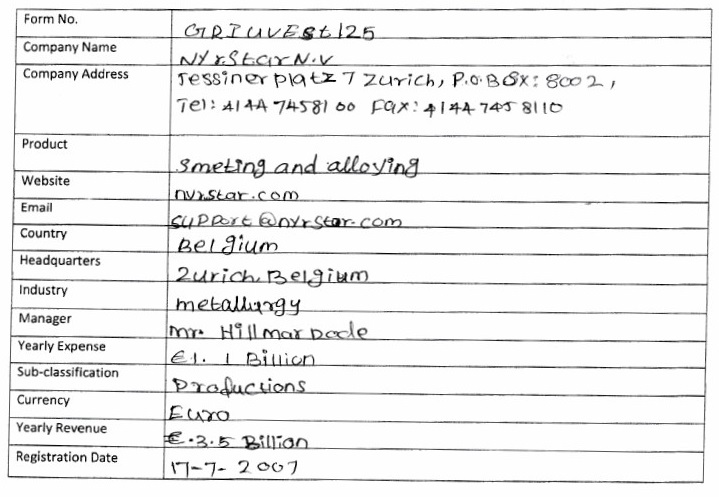 Form No. GRIUVESt125
Company Name NYrStar N.V
Company Address Tessinerplatz 7 Zurich, P.O.BOX: 8002,
Tel: 4144 7458100 Fax: 4144 745 8110
Product Smeting and alloying
Website nyrstar.com
Email support@nyrstar.com
Country Belgium
Headquarters Zurich, Belgium
Industry metallurgy
Manager mr. Hillmar Dode
Yearly Expense €1.1 Billion
Sub-classification Productions
Currency Euro
Yearly Revenue €.3.5 Billion
Registration Date 17-7-2007